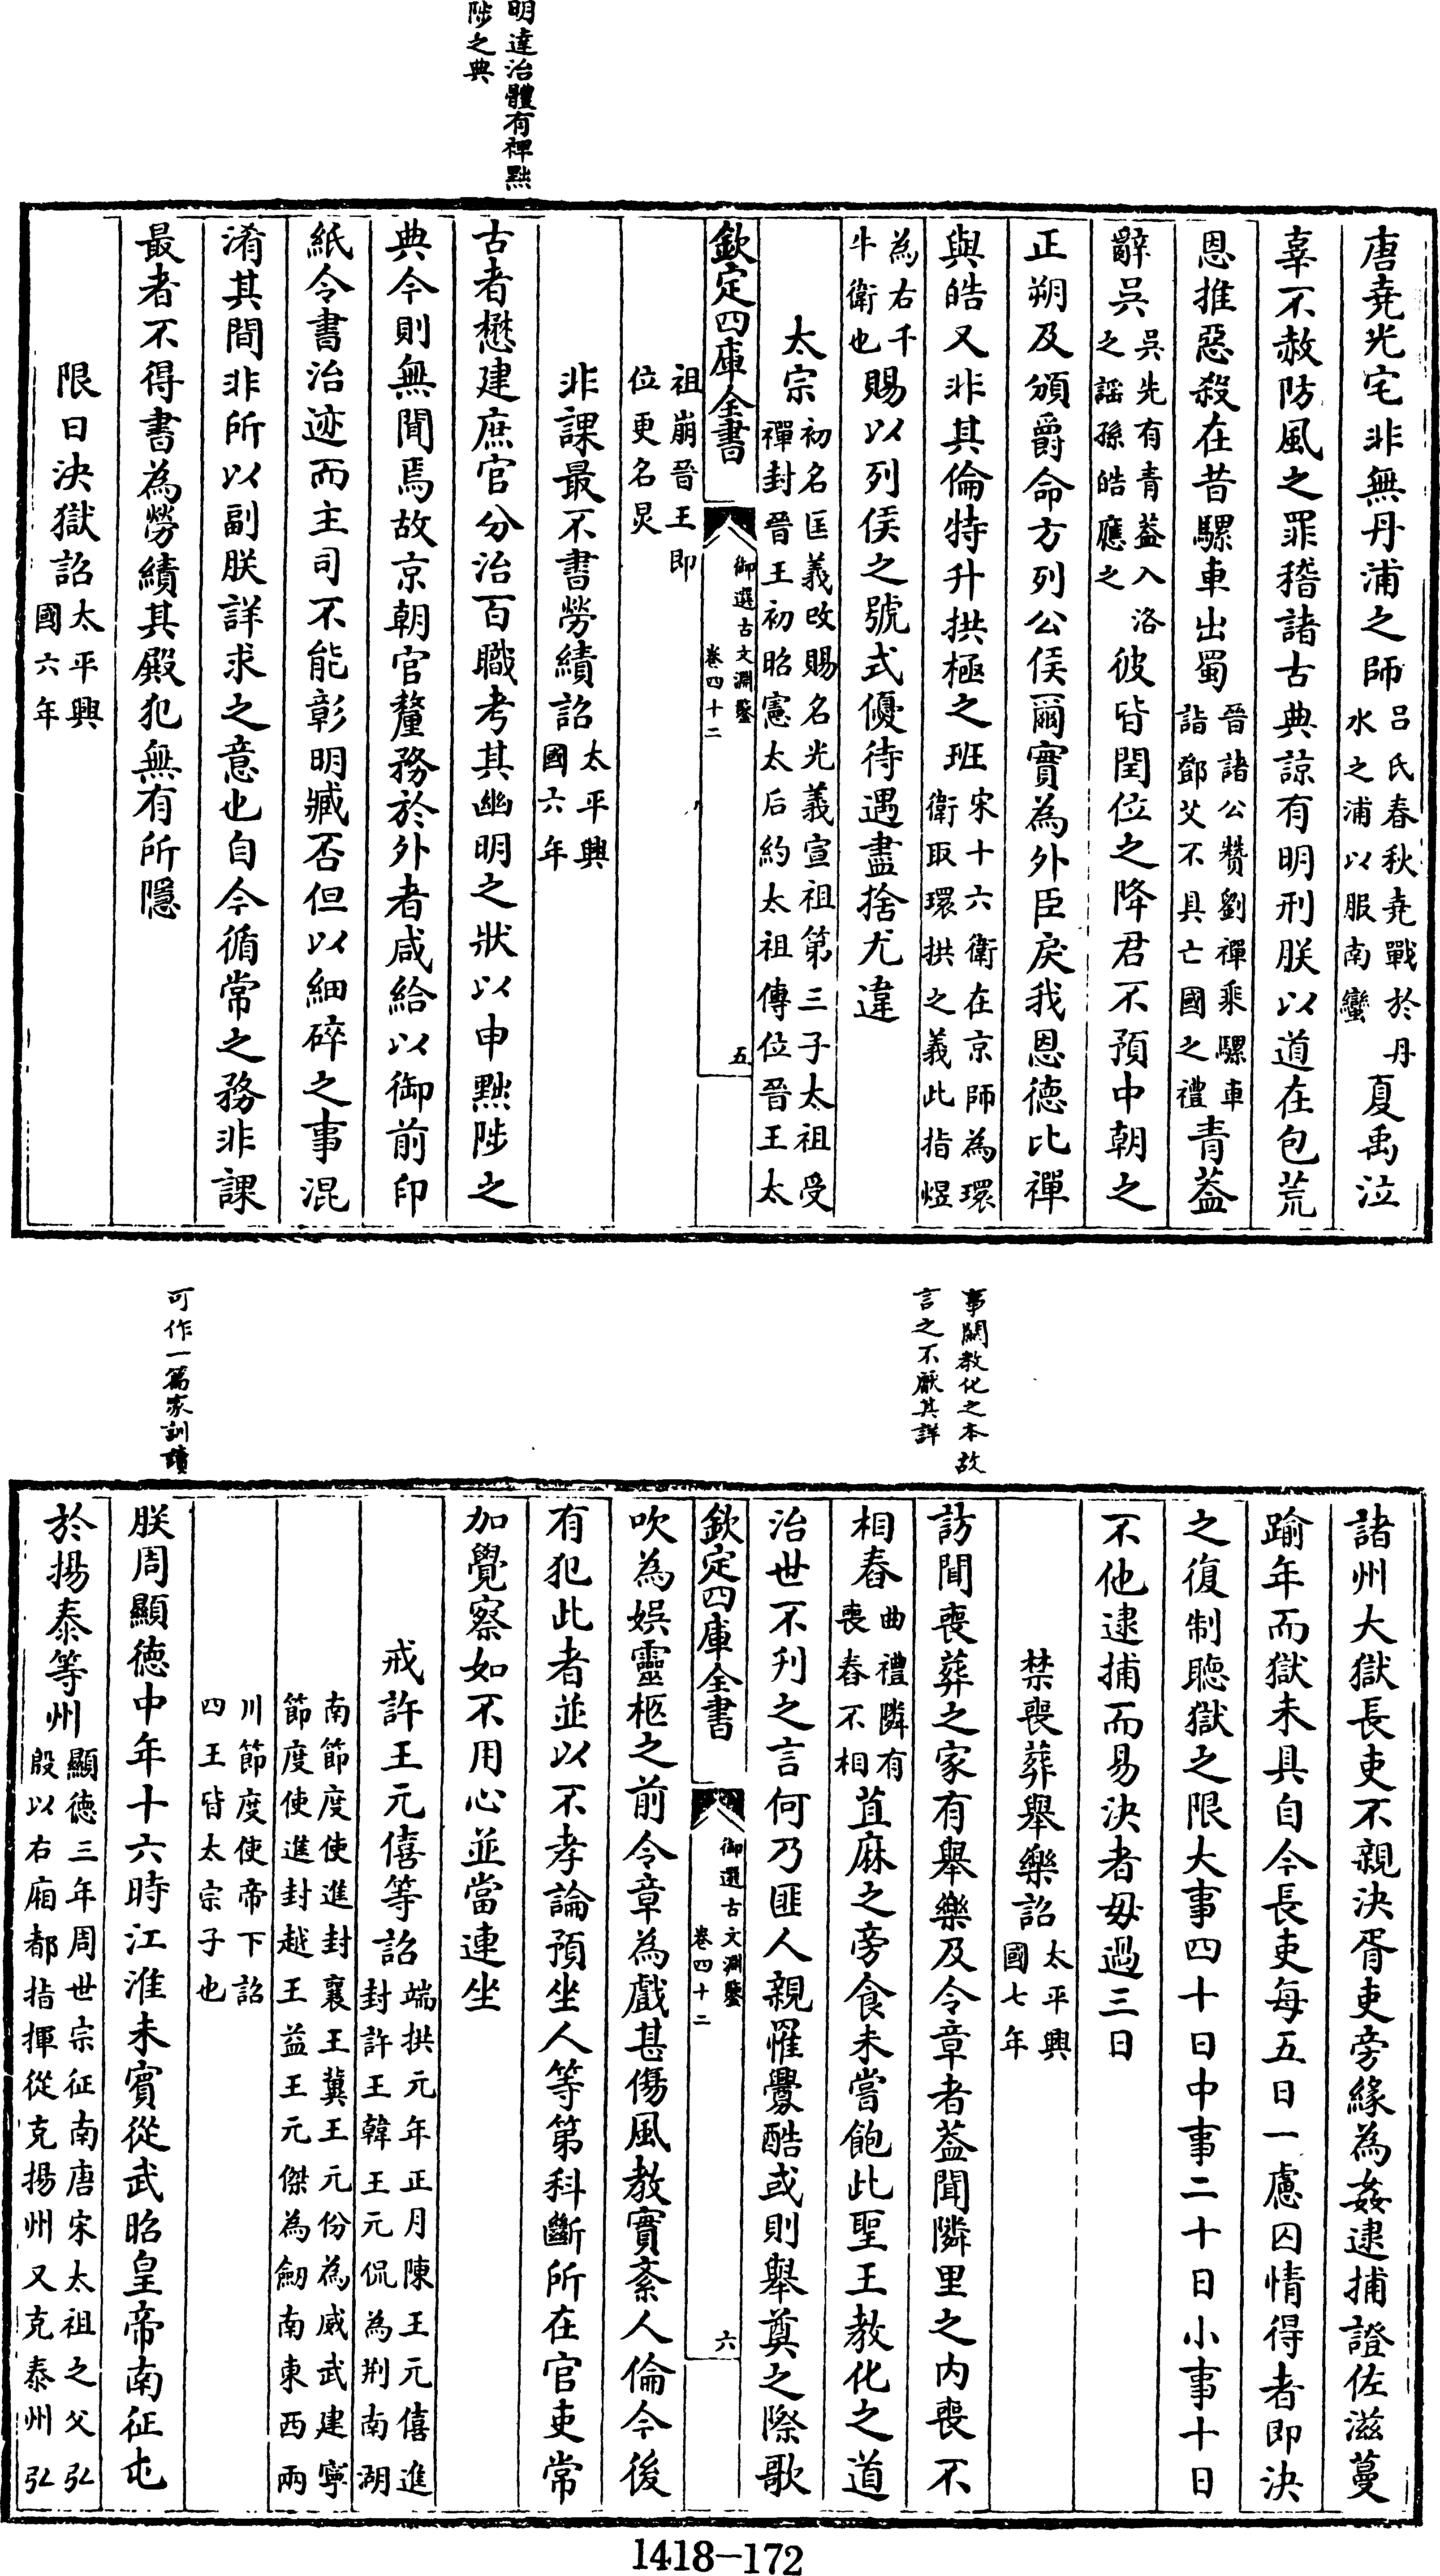 明達治體有裨黜
陟之典
唐堯光宅非無丹浦之師呂氏春秋堯戰於丹水之浦以服南蠻夏禹泣
辜不赦防風之罪稽諸古典諒有明刑朕以道在包荒
恩推惡殺在昔騾車出蜀晉諸公贊劉禪乘騾車詣鄧艾不具亡國之禮青葢
辭吳吳先有青葢入洛之謡孫皓應之彼皆閏位之降君不預中朝之
正朔及頒爵命方列公侯爾實為外臣戾我恩德比禪
與皓又非其倫特升拱極之班宋十六衛在京師為環衛取環拱之義此指煜
為右千牛衛也賜以列侯之號式優待遇盡捨尤違
太宗初名匡義改賜名光義宣祖第三子太祖受禪封晉王初昭憲太后約太祖傳位晉王太
欽定四庫全書 御選古文淵鑒 卷四十二 五
祖崩晉王即位更名炅
非課最不書勞績詔太平興國六年
古者懋建庶官分治百職考其幽明之狀以申黜陟之
典今則無聞焉故京朝官釐務於外者咸給以御前印
紙令書治迹而主司不能彰明臧否但以細碎之事混
淆其間非所以副朕詳求之意也自今循常之務非課
最者不得書為勞績其殿犯無有所隱
限日決獄詔太平興國六年
事關教化之本故
言之不厭其詳
可作一篇家訓讀
諸州大獄長吏不親決胥吏旁緣為姦逮捕證佐滋蔓
踰年而獄未具自今長吏每五日一慮囚情得者即決
之復制聽獄之限大事四十日中事二十日小事十日
不他逮捕而易決者毋過三日
禁喪葬舉樂詔太平興國七年
訪聞喪葬之家有舉樂及令章者葢聞隣里之内喪不
相舂曲禮隣有喪舂不相苴麻之旁食未嘗飽此聖王教化之道
治世不刋之言何乃匪人親罹釁酷或則舉奠之際歌
欽定四庫全書 御選古文淵鑒 卷四十二 六
吹為娱靈柩之前令章為戲甚傷風教實紊人倫今後
有犯此者並以不孝論預坐人等第科斷所在官吏常
加覺察如不用心並當連坐
戒許王元僖等詔端拱元年正月陳王元僖進封許王韓王元侃為荆南湖
南節度使進封襄王冀王元份為威武建寧節度使進封越王益王元傑為劒南東西兩
川節度使帝下詔四王皆太宗子也
朕周顯德中年十六時江淮未賓從武昭皇帝南征屯
於揚泰等州顯德三年周世宗征南唐宋太祖之父弘殷以右廂都指揮從克揚州又克泰州弘
1418-172